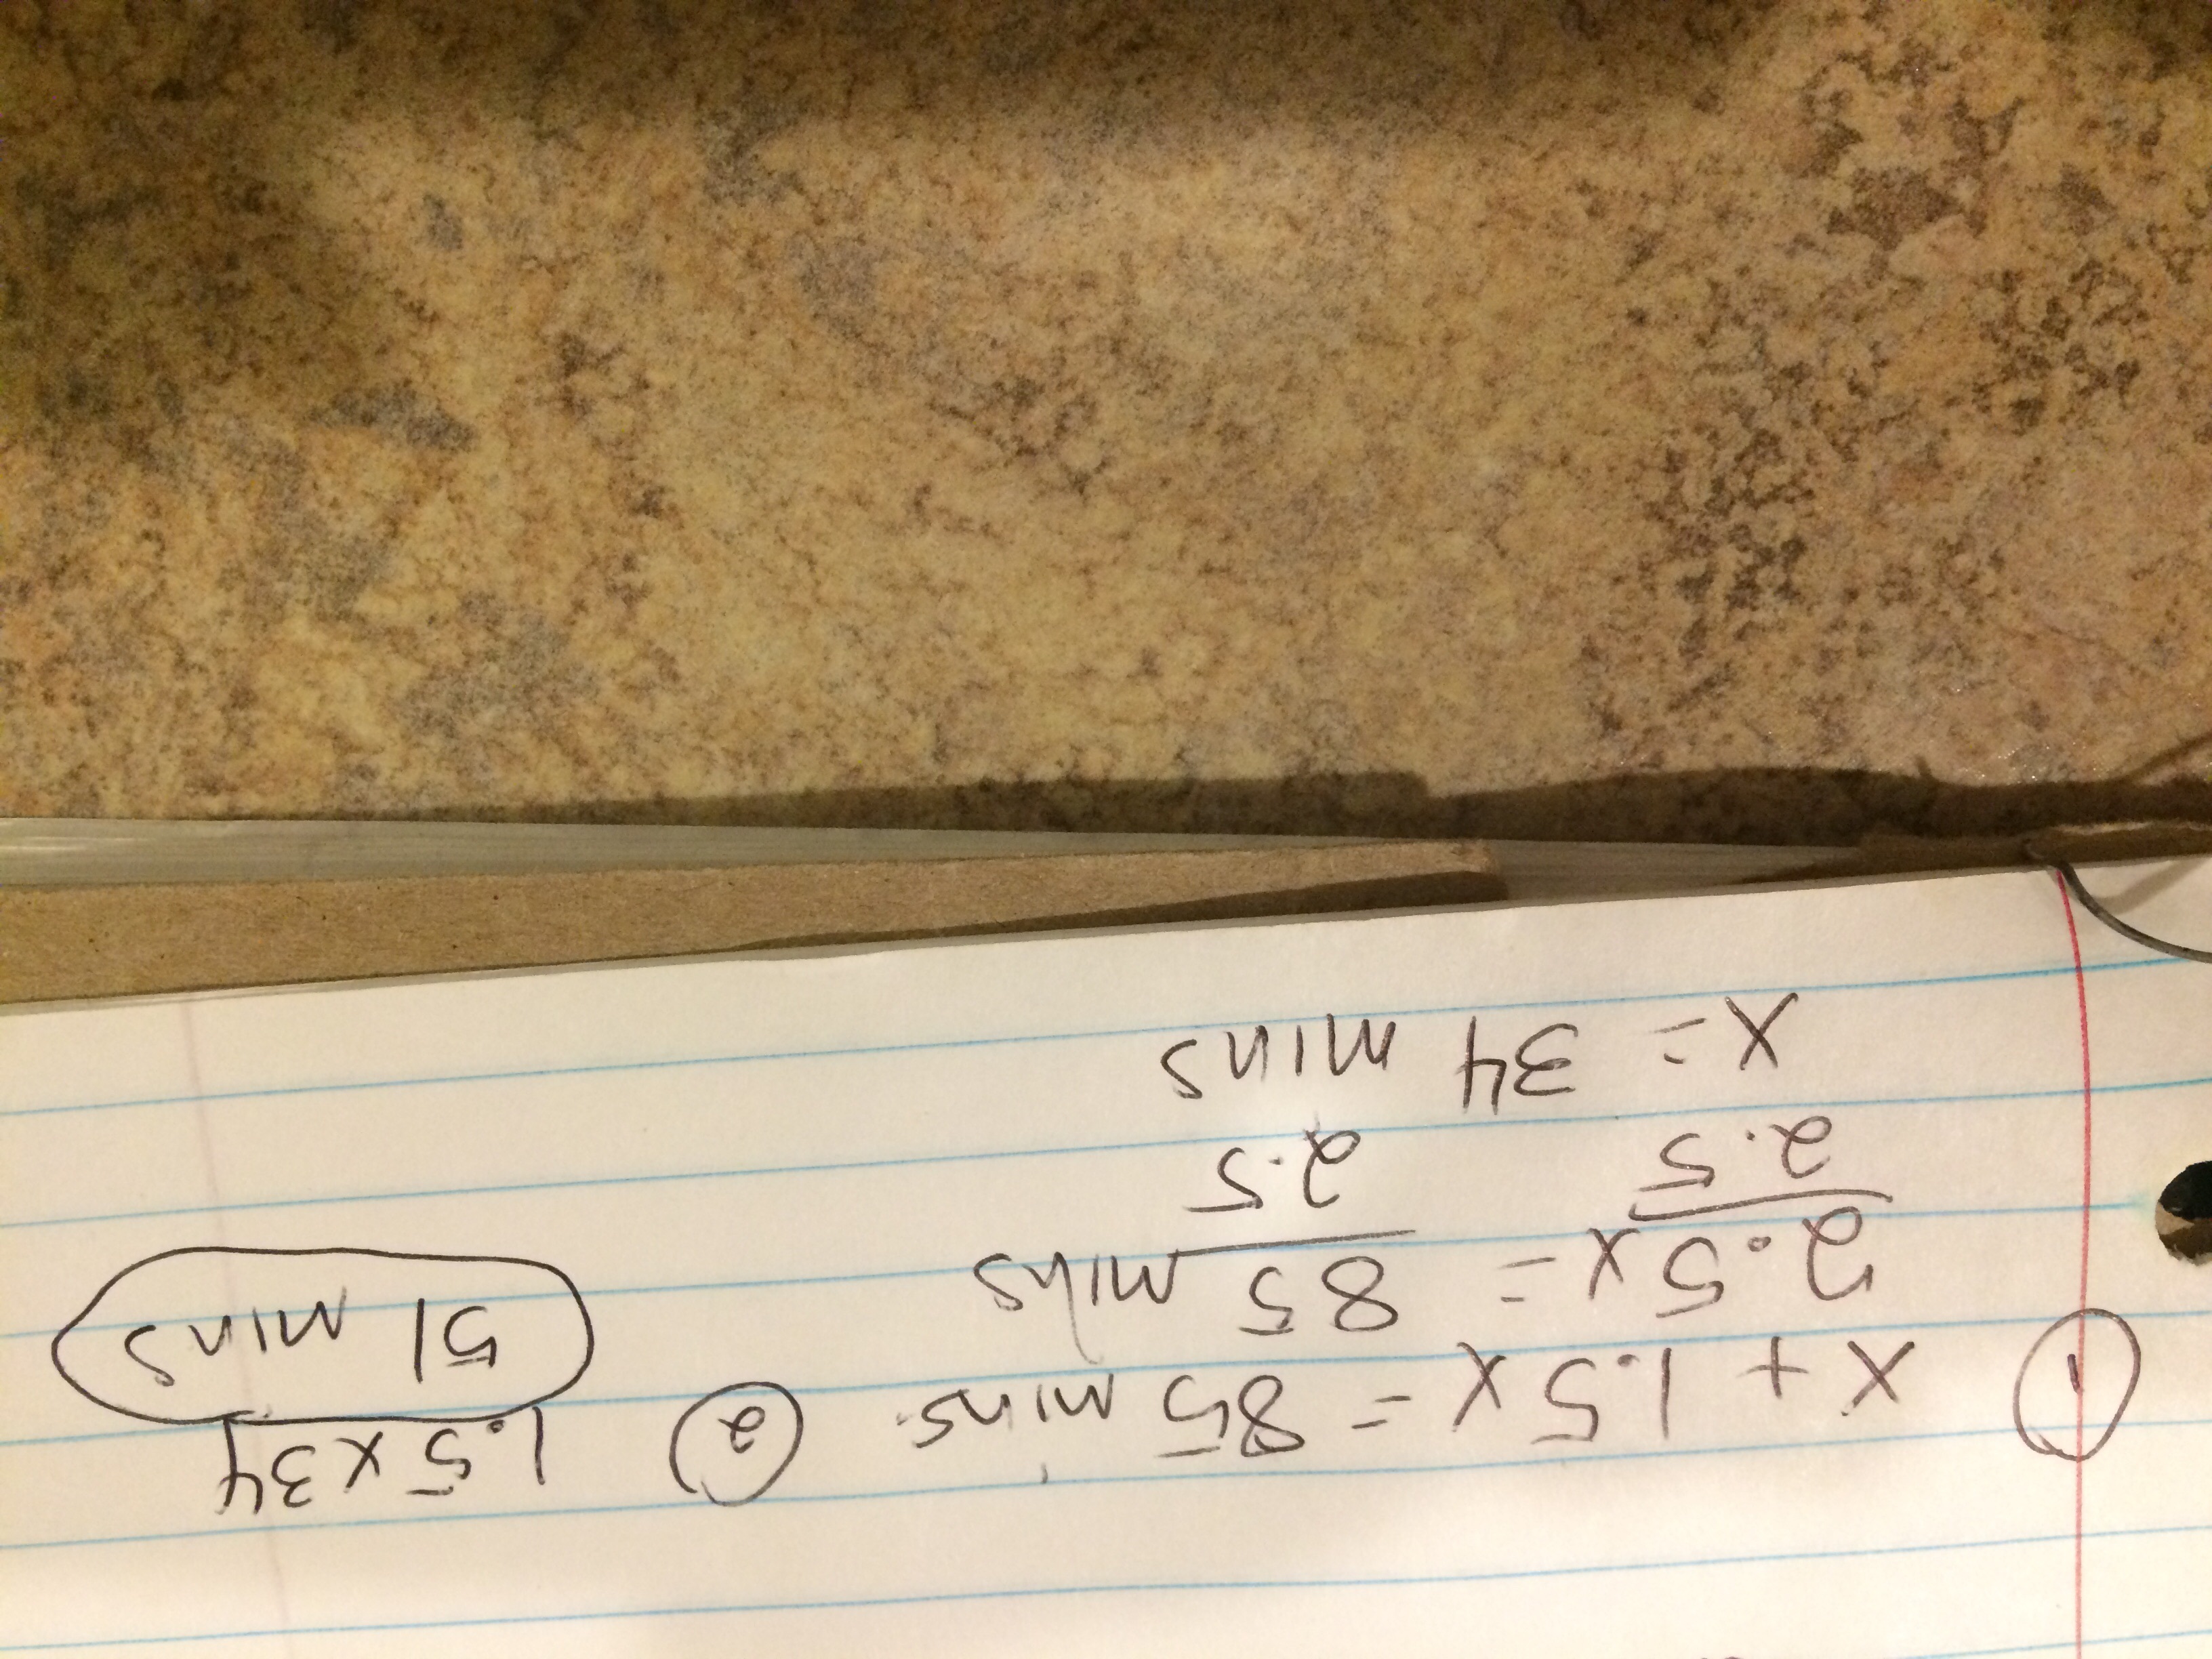 ① x + 1.5x = 85 mins.
2.5x = 85 mins
2.5 2.5
x = 34 mins
② 1.5 x 34
51 mins